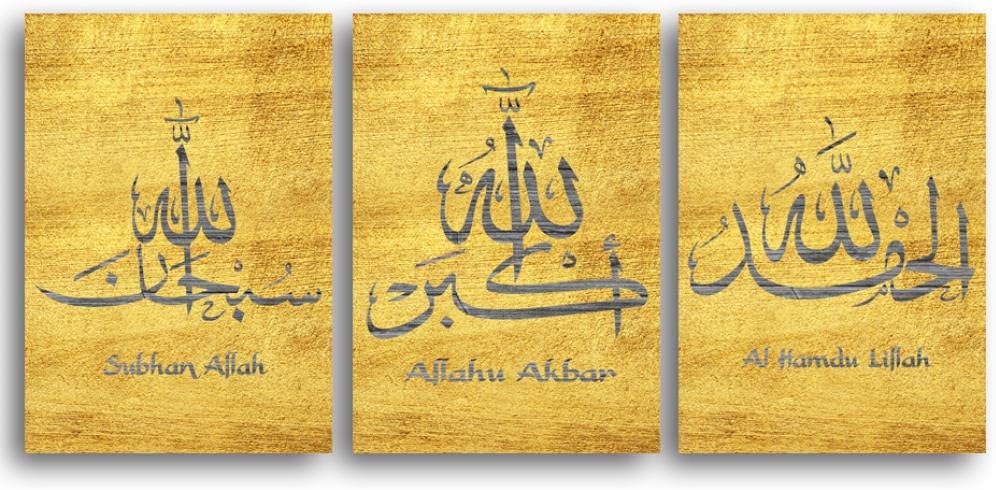 سبحان الله
Subhan Allah
الله أكبر
Allahu Akbar
الحمد لله
Al Hamdu Lillah